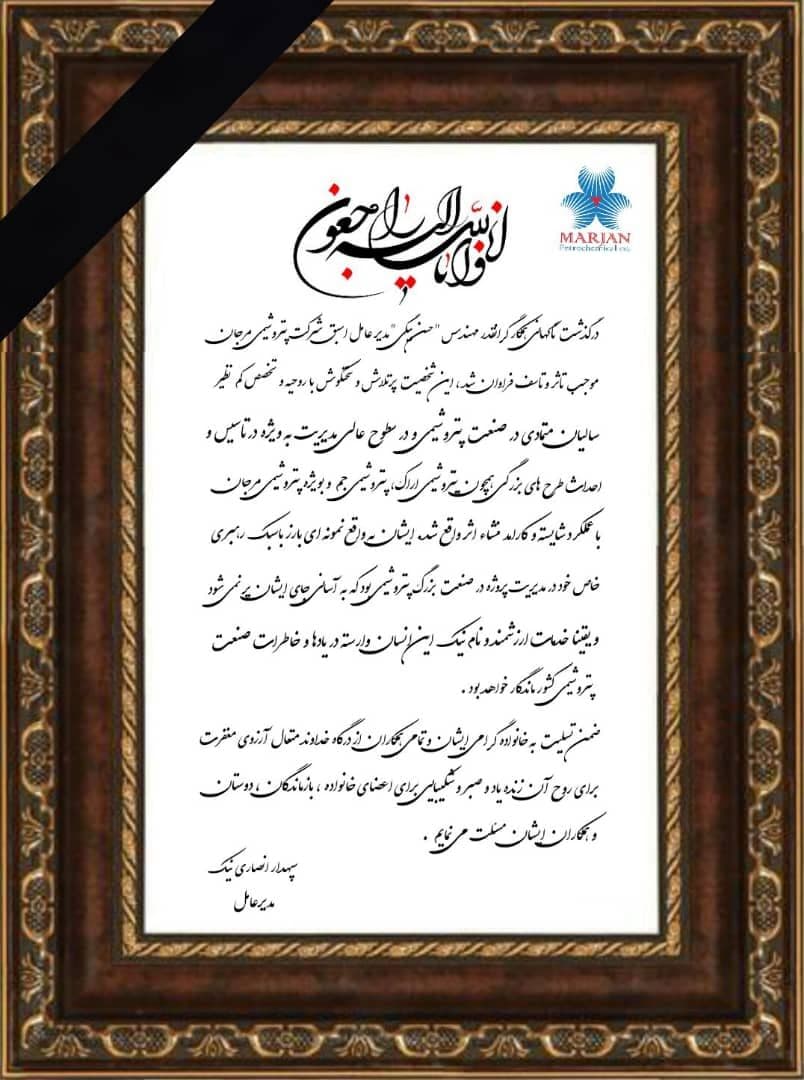 انا لله و انا الیه راجعون
MARJAN
Petrochemical co.
درگذشت ناگهانی همکار گرانقدر مهندس "حسن نیکی" مدیر عامل اسبق شرکت پتروشیمی مرجان
موجب تاثر و تاسف فراوان شد، این شخصیت پرتلاش و سختکوش با روحیه و تخصص کم نظیر
سالیان متمادی در صنعت پتروشیمی و در سطوح عالی مدیریت به ویژه در تاسیس و
احداث طرح های بزرگی همچون پتروشیمی اراک، پتروشیمی جم و بویژه پتروشیمی مرجان
با عملکرد شایسته و کارامد منشاء اثر واقع شد. ایشان به واقع نمونه ای بارز با سبک رهبری
خاص خود در مدیریت پروژه در صنعت بزرگ پتروشیمی بود که به آسانی جای ایشان پر نمی شود
و یقینا خدمات ارزشمند و نام نیک این انسان وارسته در یادها و خاطرات صنعت
پتروشیمی کشور ماندگار خواهد بود .
ضمن تسلیت به خانواده گرامی ایشان و تمامی همکاران از درگاه خداوند متعال آرزوی مغفرت
برای روح آن زنده یاد و صبر و شکیبایی برای اعضای خانواده ، بازماندگان ، دوستان
و همکاران ایشان مسئلت می نمایم .
سپهدار انصاری نیک
مدیر عامل